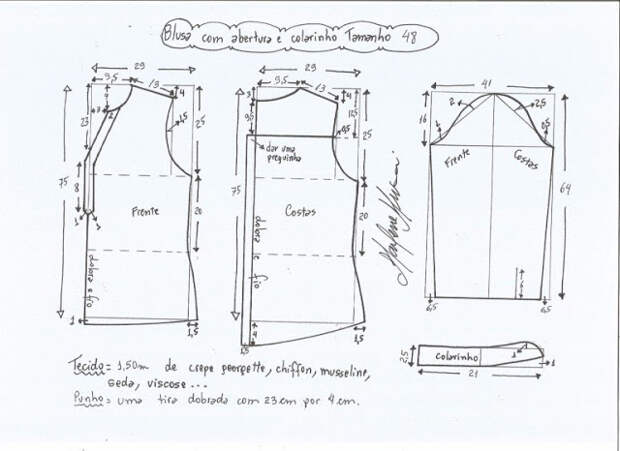 Blusa com abertura e colarinho Tamanho 48
29
9,5
13
4
23
7
2
1,5
25
75
8
1
1
Frente
20
dobra e fio
1
1,5
29
9,5
13
3
4
9,5
12,5
0,5
25
dar uma
preguinha
75
Costas
20
dobra e fio
4
1,5
1,5
41
16
2
2,5
1
0,5
Frente
Costas
64
6
6,5
6,5
2,5
Colarinho
1
1
1
21
Tecido = 1,50m de crepe georgette, chiffon, musseline,
seda, viscose...
Punho = uma tira dobrada com 23 cm por 4 cm.